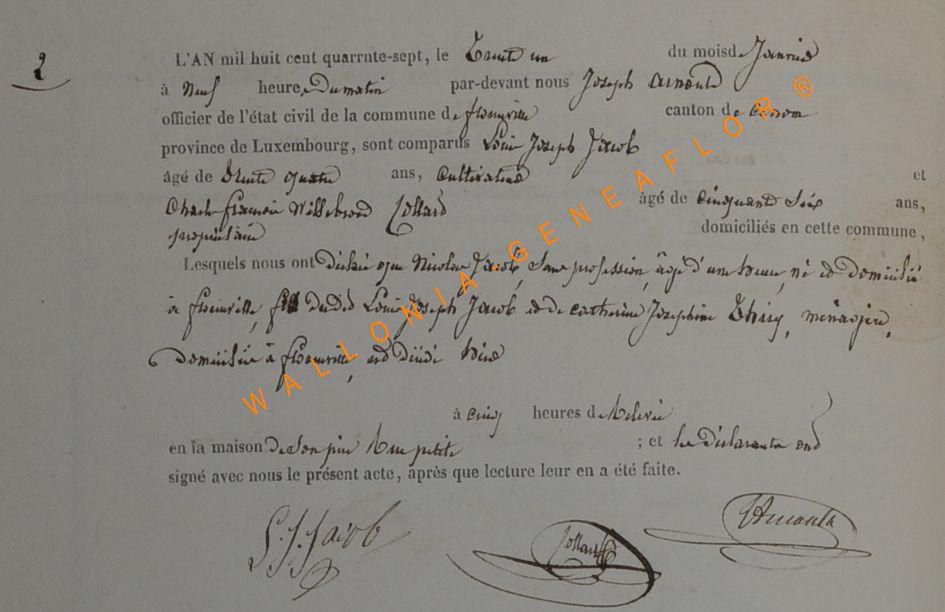 2
L'AN mil huit cent quarrnte-sept, le Trente un du mois de Janvier
à Neuf heures du matin par-devant nous Joseph Arnould
officier de l'état civil de la commune de florenville canton de
province de Luxembourg, sont comparus Louis Joseph Jacob
âgé de trente quatre ans, Cultivateur et
Charles François Willebrord Collard âgé de cinquante Six ans,
propriétaire domiciliés en cette commune,
Lesquels nous ont déclaré que Nicolas Jacob, Sans profession, âgé d'une heure, né et domicilié
à florenville, fils dudit Louis Joseph Jacob et de Catherine Josephine Thiry, ménagère,
domiciliée à florenville, est décédé hier
à cinq heures de relevée
en la maison de Son père Rue petite ; et les déclarants ont
signé avec nous le présent acte, après que lecture leur en a été faite.
L. J. Jacob
Collard
WALLONIA GENEAFLOR ®